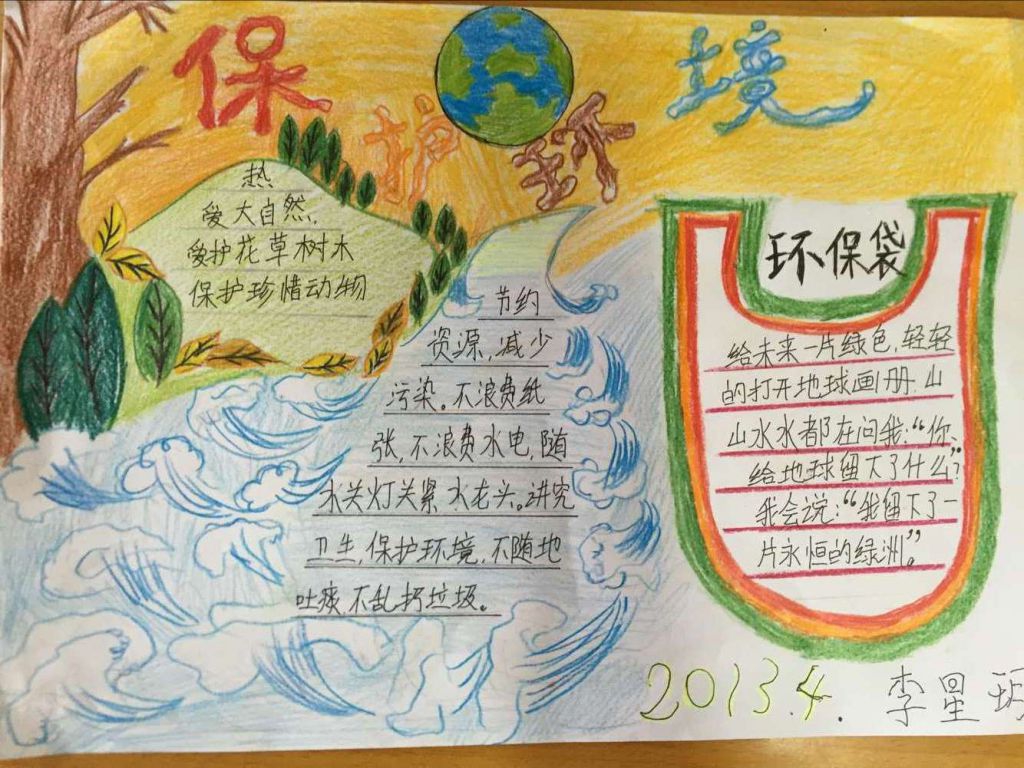 保护环境
热
爱大自然,
爱护花草树木
保护珍惜动物
节约
资源,减少
污染。不浪费纸
张,不浪费水电,随
水关灯关紧水龙头。讲究
卫生,保护环境,不随地
吐痰,不乱扔垃圾。
环保袋
给未来一片绿色,轻轻
的打开地球画册.山
山水水都在问我:“你、
给地球留下了什么”?
我会说:“我留下了一
片永恒的绿洲”。
2013.4. 李星